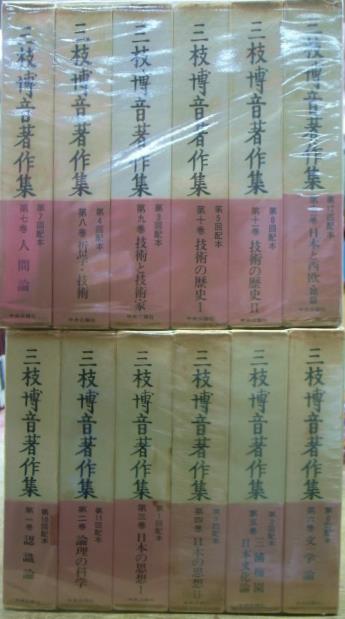 三枝博音著作集
第7回配本
第七巻 人間論
中央公論社
三枝博音著作集
第4回配本
第八巻 哲学・技術
中央公論社
三枝博音著作集
第3回配本
第九巻 技術と技術家
中央公論社
三枝博音著作集
第5回配本
第十巻 技術の歴史 I
中央公論社
三枝博音著作集
第8回配本
第十一巻 技術の歴史 II
中央公論社
三枝博音著作集
第12回配本
日本と西欧
中央公論社
三枝博音著作集
第10回配本
第一巻 認識論
三枝博音著作集
第11回配本
第二巻 論理の科学
三枝博音著作集
第1回配本
第三巻 日本の思想 I
三枝博音著作集
回配本
第四巻 日本の思想 II
三枝博音著作集
第2回配本
第五巻 三浦梅園
日本文化論
三枝博音著作集
回配本
第六巻 文学論